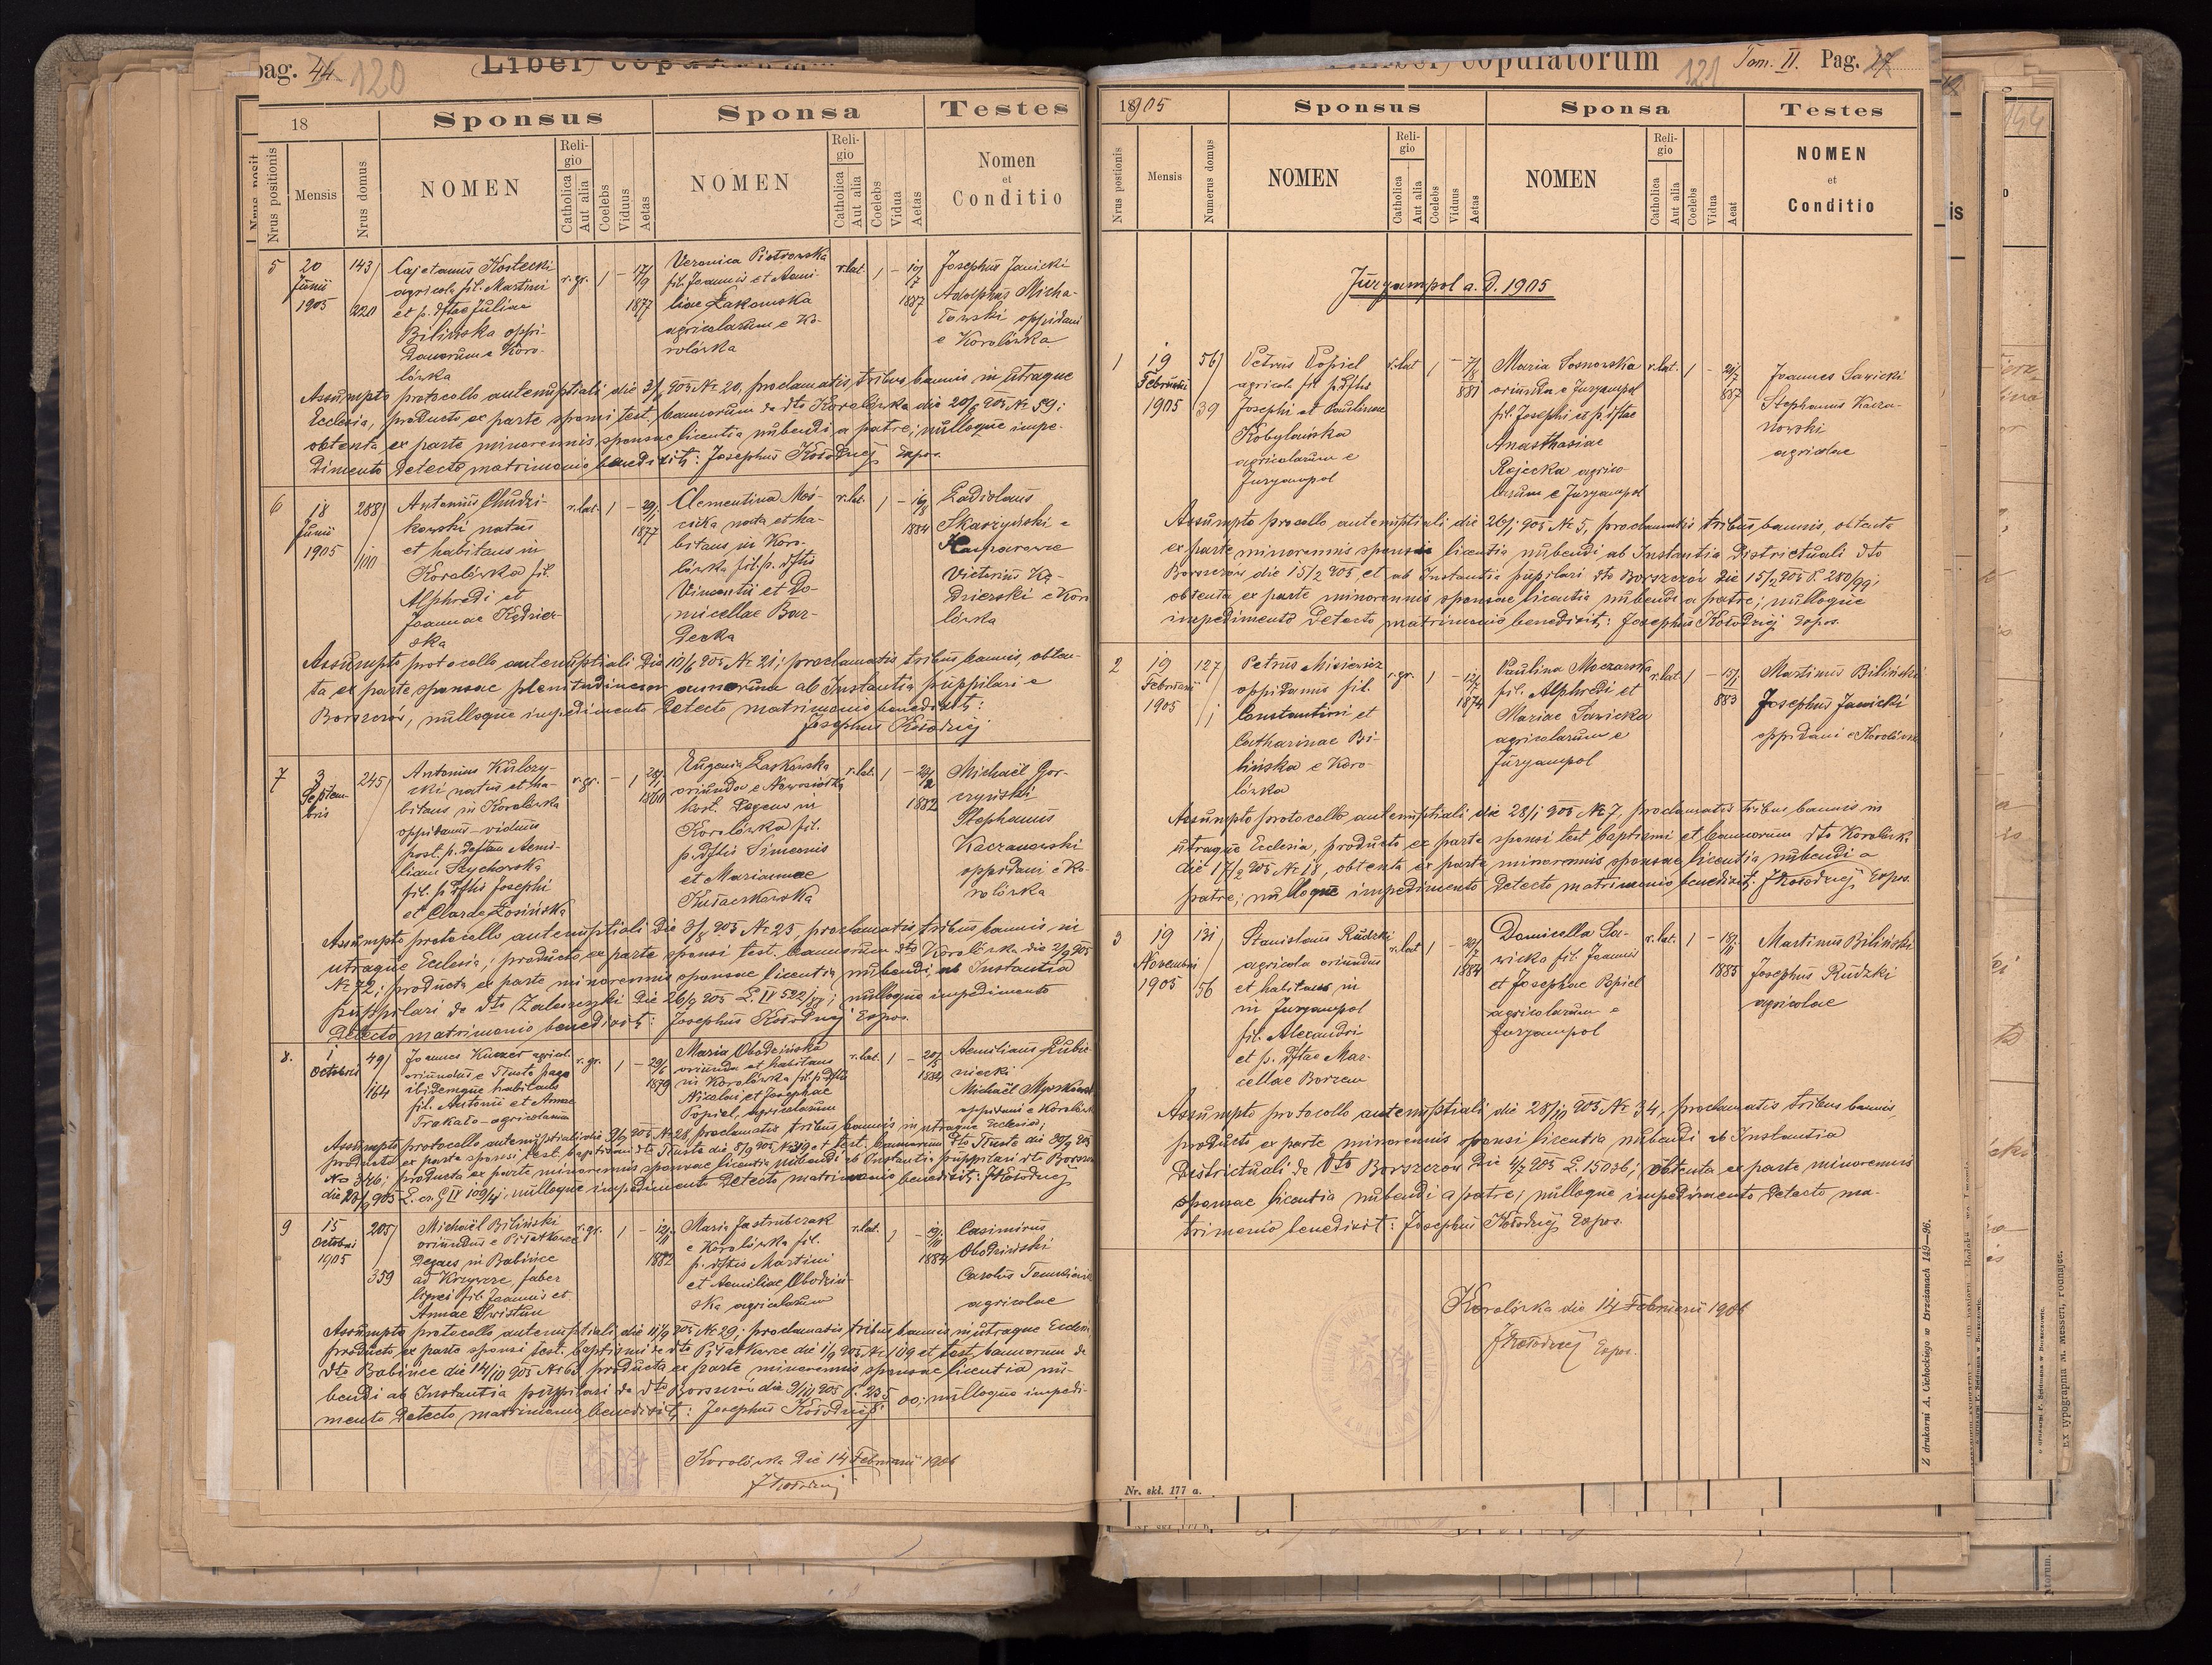 pag. 44 120
Liber copulatorum
18
Sponsus
Sponsa
Testes
Nrus positionis
Mensis
Nrus domus
NOMEN
Religio
Catholica
Aut alia
Coelebs
Viduus
Aetas
NOMEN
Religio
Catholica
Aut alia
Coelebs
Vidua
Aetas
Nomen
et
Conditio
5
20
Junii
1905
143
220
Cajetanus Kostecki
agricola fil. Martini
et p. dftae Juliae
Bilińska oppi-
danorum e Koro-
lówka
r. gr.
1
-
17/9
1877
Veronica Piotrowska
fil. Joannis et Aemi-
liae Łakomska
agricolarum e Ko-
rolówka
r. lat.
1
-
1887
Josephus Janicki
Adolphus Micha-
łowski oppidani
e Korolówka
Assumpto protocollo antenuptiali die 3/6 905 Nr 20, proclamatis tribus bannis in utraque
Ecclesia, producto ex parte sponsi test. bannorum de dto Korolówka die 20/6 905 Nr 59;
obtenta ex parte minorennis sponsae licentia nubendi a patre; nulloque impe-
dimento detecto matrimonio benedixit: Josephus Kołodziej Expos.
6
18
Junii
1905
288
100
Antonius Chudzi-
kowski natus
et habitans in
Korolówka fil.
Alphredi et
Joannae Kędzier-
ska
r. lat.
1
-
29/1
1877
Clementina Moś-
cicka nata et ha-
bitans in Koro-
lówka fil. p. dftis
Vincentii et Do-
micellae Bar-
decka
r. lat.
1
-
1884
Ladislaus
Skarżyński e
Victorius Kę-
dzierski e Koro
lówka
Assumpto protocollo antenuptiali die 10/6 905 Nr 21; proclamatis tribus bannis, obten-
ta ex parte sponsae plenitudinem annorum ab Instantia puppilari e
Borszczów, nulloque impedimento detecto matrimonio benedixit:
Josephus Kołodziej
7
3
Septem-
bris
245
Antonius Kulczy-
cki natus et ha-
bitans in Korolówka
oppidanus - viduus
post. p. deftam Aemi-
liam Szychowska
fil. p. dftis Josephi
et Clarae Łosińska
r. gr.
-
1
28/1
1860
Eugenia Laskowska
oriunda e Nowosiółka
kost. degens in
Korolówka fil.
p. dftis Simeonis
et Mariannae
r. lat.
1
-
1882
Michaël Gor-
czyński
Stephanus
Kaczanowski
oppidani e Ko-
rolówka
Assumpto protocollo antenuptiali die 3/8 905 Nr 25, proclamatis tribus bannis in
utraque Ecclesia; producto ex parte sponsi test. bannorum dto Korolówka die 2/9 905
Nr 72; producta ex parte minorennis sponsae licentia nubendi ab Instantia
puppilari de dto Zaleszczyki die 26/9 905 L. IV 522/ ; nulloque impedimento
detecto matrimonio benedixit: Josephus Kołodziej Expos.
8.
1
Octobri
49
164
Joannes Kuczer agricol.
oriundus e Tłuste pago
ibidemque habitans
fil. Antonii et Annae
Trakało - agricolarum
r. gr.
1
-
29/6
1879
Maria Obodzińska
oriunda et habitans
in Korolówka fil. p. dftis
Nicolai et Josephae
Popiel, agricolarum
r. lat.
1
-
20/5
1884
Aemilianus Rubi-
niecki
Michaël Myszkowski
oppidani e Korolówka
Assumpto protocollo antenuptiali die 9/9 905 Nr 28 proclamatis tribus bannis in utraque Ecclesia;
producto ex parte sponsi test. baptismi dto Tłuste die 8/9 905 Nr 319 et test. bannorum dto Tłuste die 30/9 905
Nro 346; producta ex parte minorennis sponsae licentia nubendi ab Instantia puppilari dto Borszczów
die 28/9 905 L. cz. G IV 109/4; nulloque impedimento detecto matrimonio benedixit: JKołodziej
9
15
Octobri
1905
205
359
Michaël Biliński
oriundus e Piłatkowce
degens in Babińce
ad Krzywcze, faber
lignei fil. Joannis et
Annae Świstun
r. gr.
1
-
12/11
1882
Maria Jastrubczak
e Korolówka fil.
p. dftis Martini
et Aemiliae Obodziń-
ska agricolarum
r. lat.
1
-
1884
Casimirus
Obodziński
Carolus
agricolae
Assumpto protocollo antenuptiali die 11/9 905 Nr 29; proclamatis tribus bannis in utraque Ecclesia
producto ex parte sponsi test. baptismi de dto Piłatkowce die 1/9 905 Nr 109 et test. bannorum de
dto Babińce die 14/10 905 Nr 63 producta ex parte minorennis sponsae licentia nu-
bendi ab Instantia puppilari de dto Borszczów die 9/10 905 P. 235/00; nulloque impedi-
mento detecto matrimonio benedixit: Josephus Kołodziej
Korolówka die 14 Februarii 1906
JKołodziej
Liber copulatorum 121 Tom. II. Pag. 27
1905
Sponsus
Sponsa
Testes
Nrus postionis
Mensis
Numerus domus
NOMEN
Religio
Catholica
Aut alia
Coelebs
Viduus
Aetas
NOMEN
Religio
Catholica
Aut alia
Coelebs
Vidua
Aeat
NOMEN
et
Conditio
Jurjampol a. D. 1905
1
19
Februarii
1905
56
39
Petrus Popiel
agricola fil. p. dftis
Josephi et Paulinae
Kobylańska
agricolarum e
Jurjampol
r. lat
1
-
7/8
881
Maria Sosnowska
oriunda e Jurjampol
fil. Josephi et p. dftae
Anasthasiae
Rojecka agrico-
larum e Jurjampol
r. lat.
1
-
21/7
887
Joannes Sawicki
Stephanus Kacza-
nowski
agricolae
Assumpto procollo antenuptiali die 26/1 905 Nr 5, proclamatis tribus bannis, obtenta
ex parte minorennis sponsi licentia nubendi ab Instantia Districtuali dto
Borszczów die 15/2 905 et ab Instantia pupilari dto Borszczów die 15/2 905 P. 280/99;
obtenta ex parte minorennis sponsae licentia nubendi a patre; nulloque
impedimento detecto matrimonio benedixit: Josephus Kołodziej Expos.
2
19
Februarii
1905
127
1
Petrus Misiewicz
oppidanus fil.
Constantini et
Catharinae Bi-
lińska e Koro-
lówka
r. gr.
1
-
12/7
1874
Paulina Moczarska
fil. Alphredi et
Mariae Sawicka
agricolarum e
Jurjampol
r. lat.
1
-
15/1
883
Martinus Biliński
Josephus Janicki
oppidani e Korolówka
Assumpto protocollo antenuptiali die 28/1 905 Nr 7, proclamatis tribus bannis in
utraque Ecclesia, producto ex parte sponsi test baptismi et bannorum dto Korolówka
die 17/2 905 Nr 18, obtenta ex parte minorennis sponsae licentia nubendi a
patre; nulloque impedimento detecto matrimonio benedixit: JKołodziej Expos.
3
19
Novembri
1905
131
56
Stanislaus Rudzki
agricola oriundus
et habitans in
in Jurjampol
fil. Alexandri
et p. dftae Mar-
cellae Borzem
r. lat
1
-
20/7
1884
Domicella Sa-
wicka fil. Joannis
et Josephae Popiel
agricolarum e
Jurjampol
r. lat.
1
-
18/11
1885
Martinus Biliński
Josephus Rudzki
agricolae
Assumpto protocollo antenuptiali die 28/10 905 Nr 34, proclamatis tribus bannis
producta ex parte minorennis sponsi licentia nubendi ab Instantia
Districtuali de dto Borszczów die 4/7 905 L. 15036; obtenta ex parte minorennis
sponsae licentia nubendi a patre; nulloque impedimento detecto ma-
trimonio benedixit: Josephus Kołodziej Expos.
Korolówka die 14 Februarii 1906
JKołodziej Expos.
Nr. skł. 177 a.
Z drukarni A. Cichockiego w Brzeżanach 149—96.
Ex typographia M. Messeri, Podhajce.